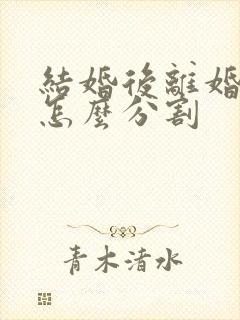 結婚後離婚
怎麼分割
青木清水